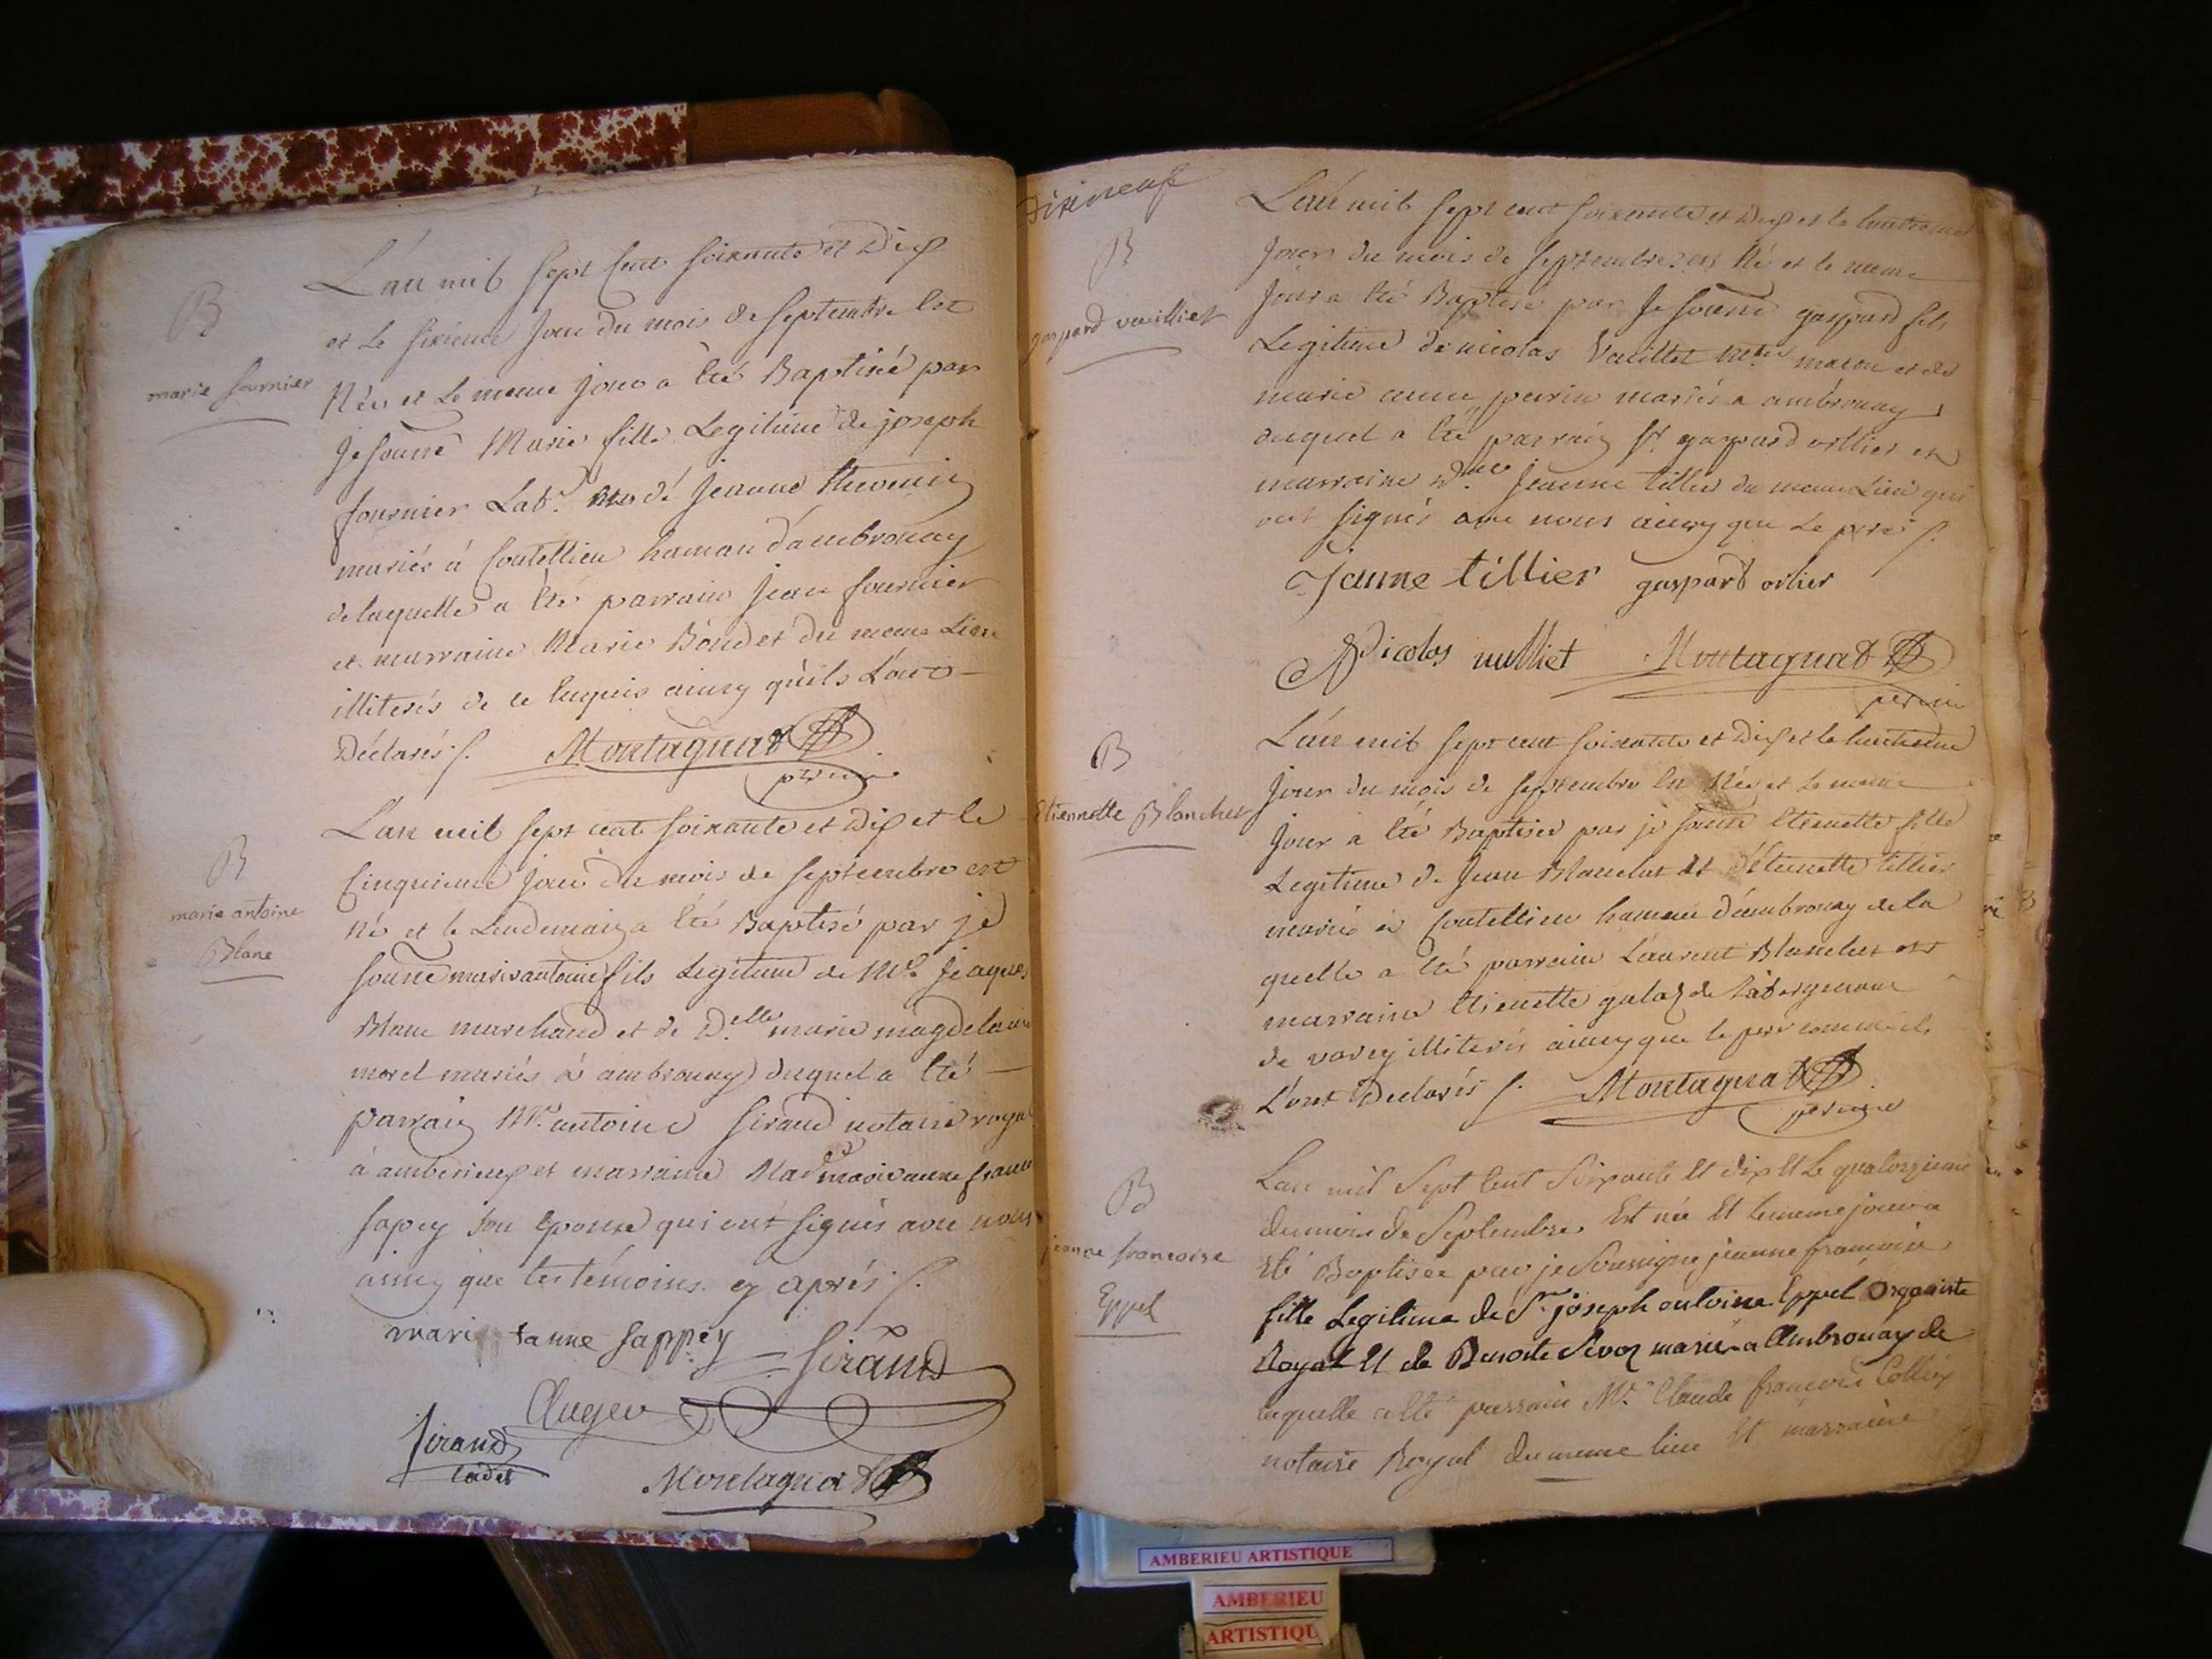 B
marie fournier
L'an mil sept cent soixante et Dix
et Le sixieme Jour du mois de septembre Est
Née et Le meme jour a été Baptisé par
Je sousné Marie fille Legitime de joseph
fournier Labr. de Jeanne thevenin
mariés á Coutellieu hamau d'ambronay
de laquelle a été parrain Jean fournier
et marraine Marie Boudet du meme Lieu
illiterés de ce Enquis ainsy qu'ils L'ont
Déclarés /. Montagnat
B
marie antoine
Blanc
L'an mil sept cent soixante et Dix et le
Cinquieme jour du mois de septembre est
Né et le Lendemain a été Baptisé par je
sousné marie antoine fils Legitime de Mr. Jeaques
Blanc marchand et de D.elle marie magdelaine
morel mariés á ambronay duquel a été
parrain Mr. antoine sirand notaire roya
à amberieux et marraine Made marie anne
sapey son épouse qui ont signés avec nous
ainsy que les témoins cy aprés /.
marie anne sappey Sirand
Auger
Sirand
Cadet
Montagnat
Dixneuf
B
gaspard vuilliet
L'an mil sept cent soixante et Dix et le huitieme
Jour du mois de septembre est Né et le meme
Jour a été Baptisé par Je sousné gaspard fils
Legitime de nicolas Vuillet maçon et de
marie anne perrin mariés a ambronay
duquel a été parrain Sr. gaspard ortlier et
marraine Jeanne tillier du meme Lieu qui
ont signés avec nous ainsy que Le pere /.
Janne tillier gaspard orlier
Nicolas vulliet Montagnat
B
Etiennette Blanchet
L'an mil sept cent soixante et Dix et le huitieme
Jour du mois de septembre Est Née et Le meme
Jour a été Baptisée par je sousné Etienette fille
Legitime de Jean Blanchet et d'Etienette tillier
mariés à Coutellieu hameau d'ambronay de la
quelle a été parrain Laurent Blanchet et
marraine Etienette de
de varey illiterés ainsy que le pere comme ils
L'ont Declarés /. Montagnat
B
jeanne francoise
Eppel
L'an mil Sept Cent Soixante Et dix Et Le quatorzieme
du mois de Septembre Est née Et Le meme jour a
Eté Baptisée par je Soussigné jeanne francoise
fille Legitime de Sr. joseph antoine Eppel Organiste
Royal Et de Benoite Sevoz mariés a Ambronay de
laquelle a Eté parrain Mr. Claude francois
notaire Royal du meme lieu Et marraine
AMBERIEU ARTISTIQUE
AMBERIEU
ARTISTIQU